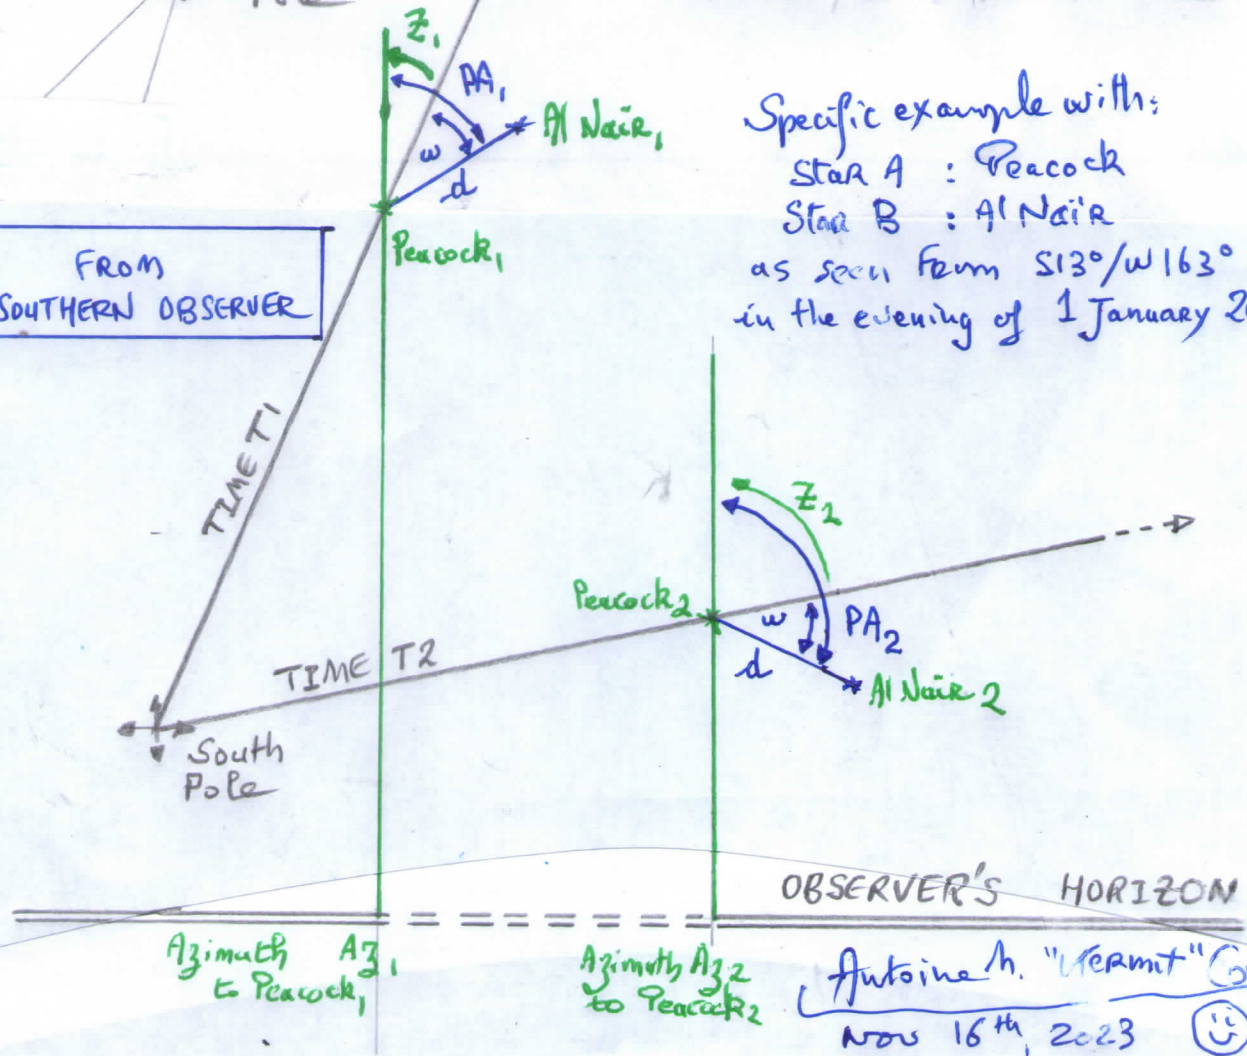 Z₁
PA₁
Al Naïr₁
w
d
Peacock₁
Specific example with:
Star A : Peacock
Star B : Al Naïr
as seen from S13°/W163°
in the evening of 1 January 2
FROM
SOUTHERN OBSERVER
TIME T1
Z₂
Peacock₂
w
PA₂
d
Al Naïr 2
TIME T2
South
Pole
OBSERVER'S HORIZON
Azimuth Az₁
to Peacock₁
Azimuth Az₂
to Peacock₂
Antoine M. "Kermit"
Nov 16th, 2023